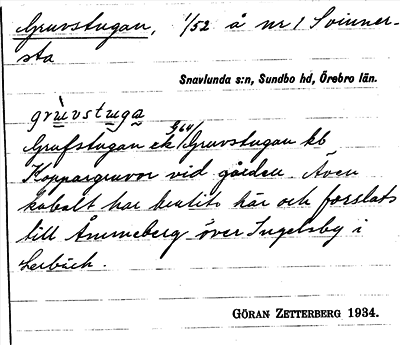 Gruvstugan, 1/52 å nr 1 Svinner-
sta
Snavlunda s:n, Sundbo hd, Örebro län.
grùvstuga
Grufstugan ek 1864 Gruvstugan kb
Koppargruvor vid gården Även
kobolt har brutits här och forslats
till Åmmeberg över Ingelsby i
Lerbäck.
GÖRAN ZETTERBERG 1934.